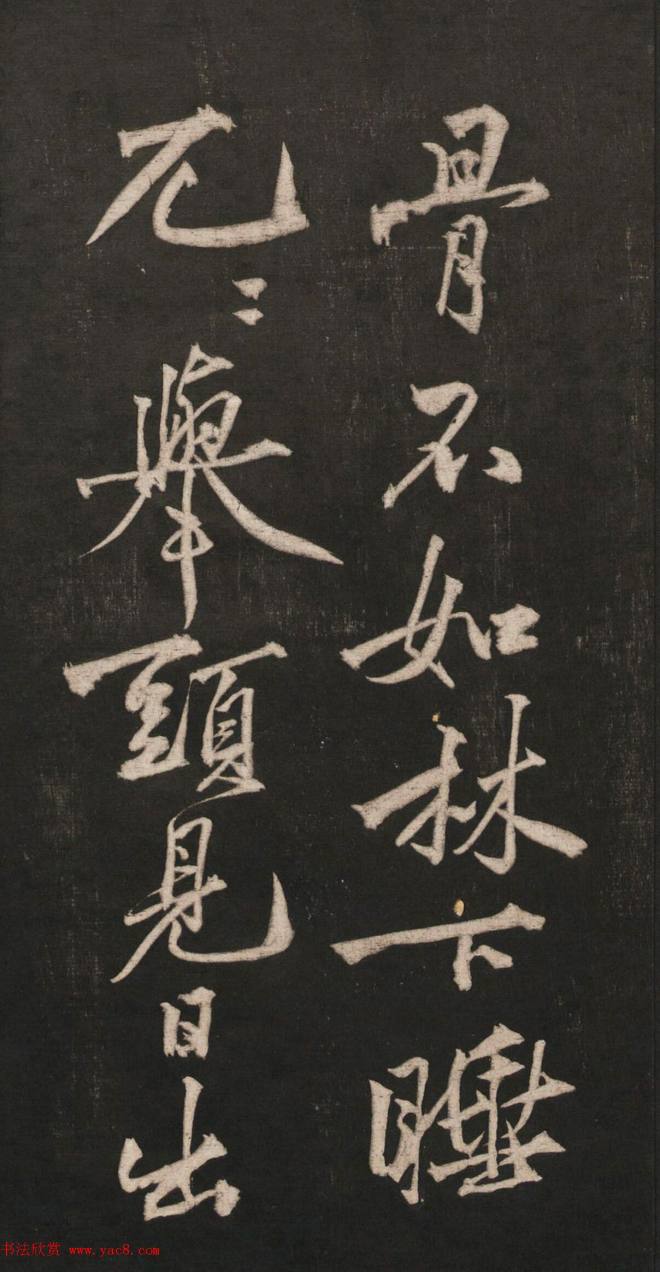 骨不如林下睡
兀〻舉頭見日出
书法欣赏 www.yac8.com